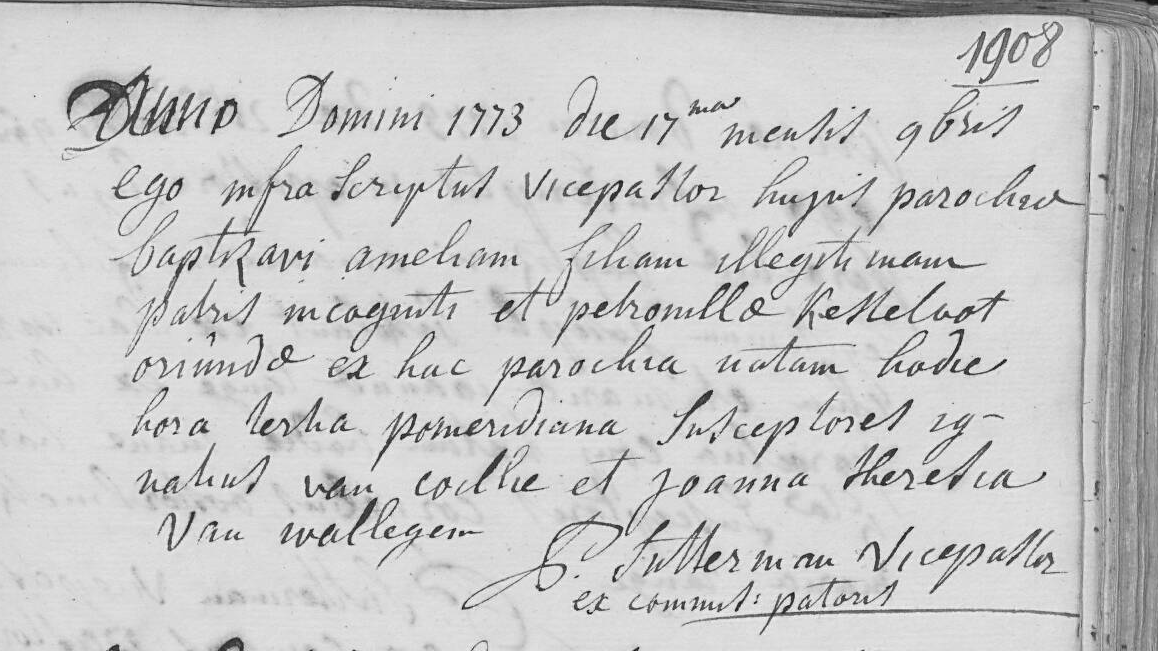 1908
Anno Domini 1773 die 17ma mensis 9bris
ego infra scriptus vicepastor hujus parochiæ
baptizavi ameliam filiam illegitimam
patris incogniti et petronillæ Kesteloot
oriundæ ex hac parochia natam hodie
hora tertia pomeridiana Susceptores ig-
natius van coillie et joanna theresia
Van wallegem
P. Sutterman Vicepastor
ex commis: patoris